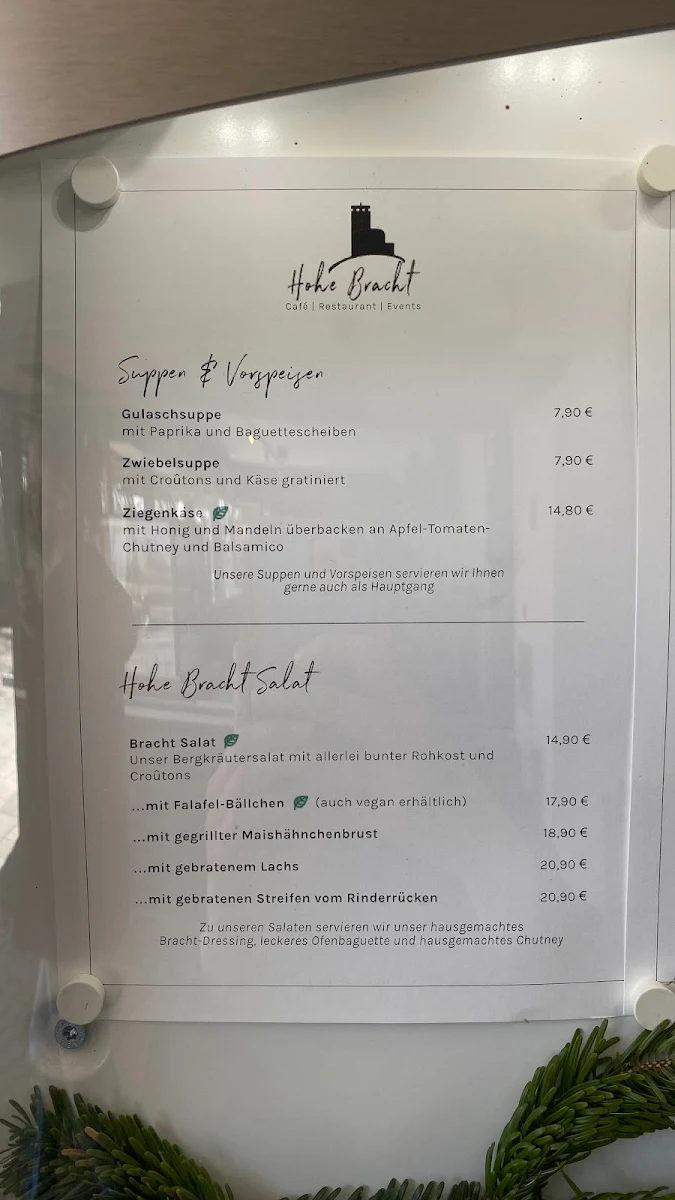 Hohe Bracht
Café | Restaurant | Events
Suppen & Vorspeisen
Gulaschsuppe 7,90 €
mit Paprika und Baguettescheiben
Zwiebelsuppe 7,90 €
mit Croûtons und Käse gratiniert
Ziegenkäse 14,80 €
mit Honig und Mandeln überbacken an Apfel-Tomaten-
Chutney und Balsamico
Unsere Suppen und Vorspeisen servieren wir Ihnen
gerne auch als Hauptgang
Hohe Bracht Salat
Bracht Salat 14,90 €
Unser Bergkräutersalat mit allerlei bunter Rohkost und
Croûtons
...mit Falafel-Bällchen (auch vegan erhältlich) 17,90 €
...mit gegrillter Maishähnchenbrust 18,90 €
...mit gebratenem Lachs 20,90 €
...mit gebratenen Streifen vom Rinderrücken 20,90 €
Zu unseren Salaten servieren wir unser hausgemachtes
Bracht-Dressing, leckeres Ofenbaguette und hausgemachtes Chutney